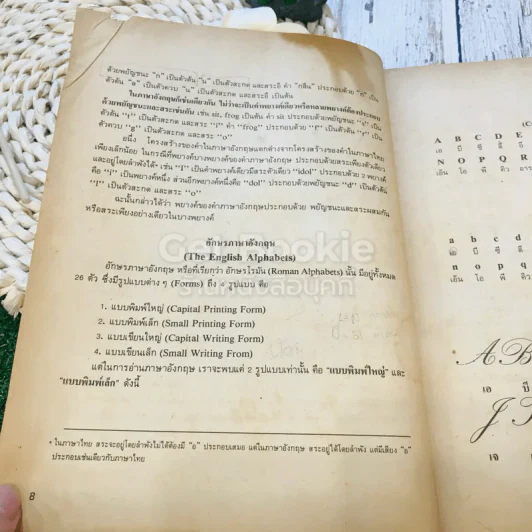 ด้วยพยัญชนะ "ก" เป็นตัวต้น "น" เป็นตัวสะกด และสระอิ คำ "กลืน" ประกอบด้วย "ก" เป็น
ตัวต้น "ล" เป็นตัวควบ "น" เป็นตัวสะกด และสระอื เป็นต้น
ในภาษาอังกฤษก็เช่นเดียวกัน ไม่ว่าจะเป็นคำพยางค์เดียวหรือหลายพยางค์ต้องประกอบ
ด้วยพยัญชนะและสระเช่นกัน เช่น sit, frog เป็นต้น คำ sit ประกอบด้วยพยัญชนะ "s" เป็น
ตัวต้น "t" เป็นตัวสะกด และ สระ "i" คำ "frog" ประกอบด้วย "f" เป็นตัวต้น "r" เป็น
ตัวควบ "g" เป็นตัวสะกด และ สระ "o"
อนึ่ง โครงสร้างของคำในภาษาอังกฤษแตกต่างจากโครงสร้างของคำในภาษาไทย
เพียงเล็กน้อย ในกรณีที่พยางค์บางพยางค์ของคำภาษาอังกฤษ ประกอบด้วยสระเพียงตัวเดียว
และอยู่โดยลำพังได้* เช่น "I" เป็นคำพยางค์เดียวมีสระตัวเดียว "idol" ประกอบด้วย 2 พยางค์
คือ "i" เป็นพยางค์หนึ่ง ส่วนอีกพยางค์หนึ่งคือ "dol" ประกอบด้วยพยัญชนะ "d" เป็นตัวต้น
"l" เป็นตัวสะกด และสระ "o"
ฉะนั้นกล่าวได้ว่า พยางค์ของคำภาษาอังกฤษประกอบด้วย พยัญชนะและสระผสมกัน
หรือสระเพียงอย่างเดียวในบางพยางค์
อักษรภาษาอังกฤษ
(The English Alphabets)
อักษรภาษาอังกฤษ หรือที่เรียกว่า อักษรโรมัน (Roman Alphabets) นั้น มีอยู่ทั้งหมด
26 ตัว ซึ่งมีรูปแบบต่าง ๆ (Forms) ถึง 4 รูปแบบ คือ
1. แบบพิมพ์ใหญ่ (Capital Printing Form)
2. แบบพิมพ์เล็ก (Small Printing Form)
3. แบบเขียนใหญ่ (Capital Writing Form)
4. แบบเขียนเล็ก (Small Writing From)
แต่ในการอ่านภาษาอังกฤษ เราจะพบแค่ 2 รูปแบบเท่านั้น คือ "แบบพิมพ์ใหญ่" และ
"แบบพิมพ์เล็ก" ดังนี้
* ในภาษาไทย สระจะอยู่โดยลำพังไม่ได้ต้องมี "อ" ประกอบเสมอ แต่ในภาษาอังกฤษ สระอยู่ได้โดยลำพัง แต่มีเสียง "อ"
ประกอบเช่นเดียวกับภาษาไทย
8
A B C D E
เอ บี ซี ดี อี
N O P Q R
เอ็น โอ พี คิว อาร
a b c d
เอ บี ซี ดี
n o p q
เอ็น โอ พี คิว
A B
เอ บี
J
เจ
Get Bookie
ร้านหนังสือบุคกี้